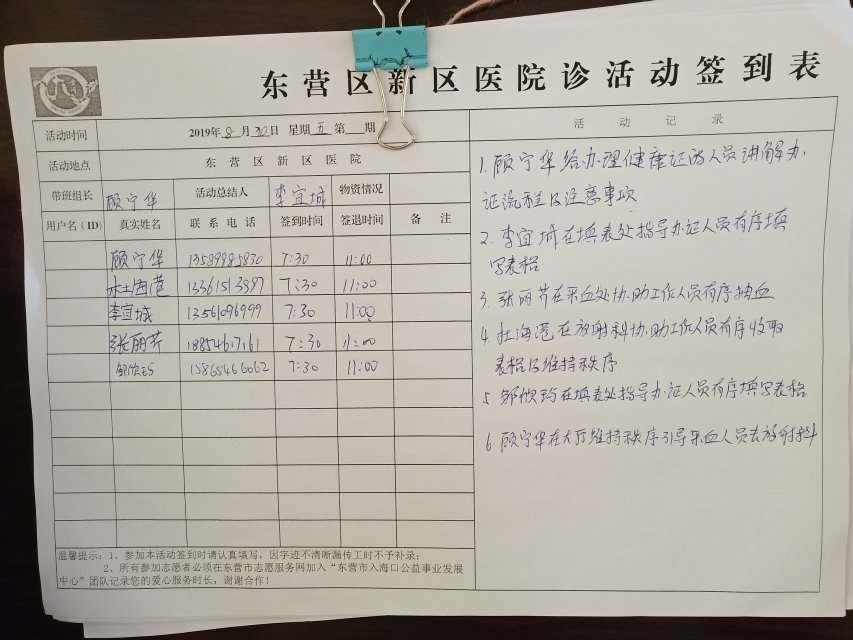 东营区新区医院诊活动签到表
活动时间 2019年8月30日 星期五 第 期
活动地点 东营区新区医院
带班组长 顾宁华 活动总结人 李宜城 物资情况
用户名(ID) 真实姓名 联系电话 签到时间 签退时间 备注
顾宁华 13589985830 7:30 11:00
杜海港 13361513997 7:30 11:00
李宜城 13561096999 7:30 11:00
张丽芹 18854617161 7:30 11:00
邹欣玙 15865466062 7:30 11:00
温馨提示:1、参加本活动签到时请认真填写,因字迹不清晰漏传工时不予补录;
2、所有参加志愿者必须在东营市志愿服务网加入“东营市入海口公益事业发展
中心”团队记录您的爱心服务时长,谢谢合作!
活动记录
1.顾宁华给办理健康证的人员讲解办
证流程及注意事项
2.李宜城在填表处指导办证人员有序填
写表格
3.张丽芹在采血处协助工作人员有序抽血
4.杜海港在放射科协助工作人员有序收取
表格及维持秩序
5.邹欣玙在填表处指导办证人员有序填写表格
6.顾宁华在大厅维持秩序引导采血人员去放射科